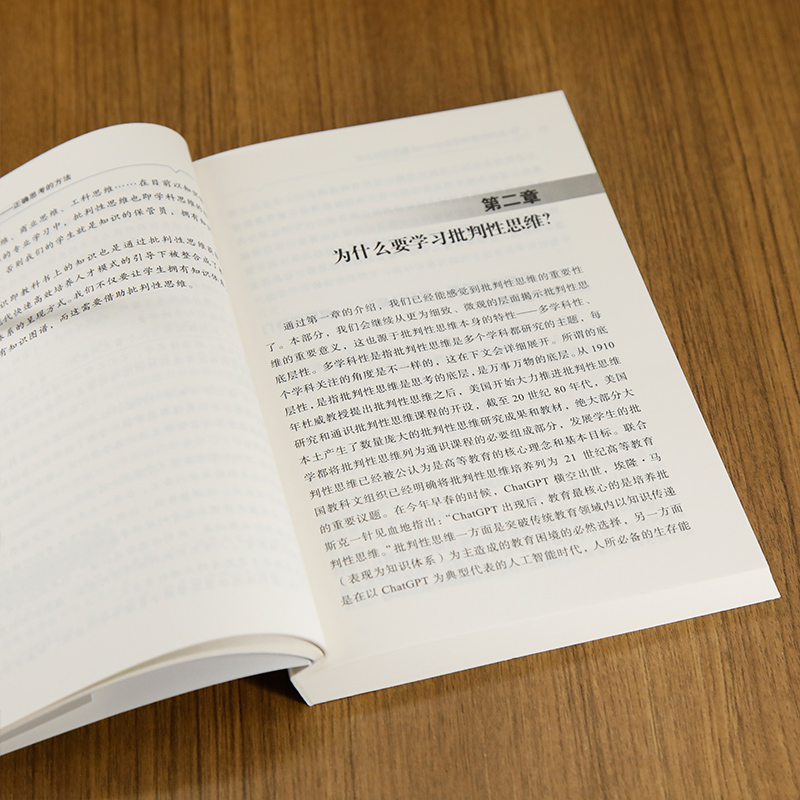 正确思考的方法
维、商业思维、工科思维……在目前以知识
的专业学习中，批判性思维也即学科思维的
否则我们的学生就是知识的保管员，拥有
识即教科书上的知识也是通过批判性思维获
代快速高效培养人才模式的引导下被整合成
体系的呈现方式。我们不仅要让学生拥有知识体
有知识图谱，而这需要借助批判性思维。
第二章
为什么要学习批判性思维？
通过第一章的介绍，我们已经能感觉到批判性思维的重要性
了。本部分，我们会继续从更为细致、微观的层面揭示批判性思
维的重要意义，这也源于批判性思维本身的特性——多学科性、
底层性。多学科性是指批判性思维是多个学科都研究的主题，每
个学科关注的角度是不一样的，这在下文会详细展开。所谓的底
层性，是指批判性思维是思考的底层，是万事万物的底层。从 1910
年杜威教授提出批判性思维之后，美国开始大力推进批判性思维
研究和通识批判性思维课程的开设，截至 20 世纪 80 年代，美国
本土产生了数量庞大的批判性思维研究成果和教材，绝大部分大
学都将批判性思维列为通识课程的必要组成部分，发展学生的批
判性思维已经被公认为是高等教育的核心理念和基本目标。联合
国教科文组织已经明确将批判性思维培养列为 21 世纪高等教育
的重要议题。在今年早春的时候，ChatGPT 横空出世，埃隆·马
斯克一针见血地指出：“ChatGPT 出现后，教育最核心的是培养批
判性思维。”批判性思维一方面是突破传统教育领域内以知识传递
（表现为知识体系）为主造成的教育困境的必然选择，另一方面
是在以 ChatGPT 为典型代表的人工智能时代，人所必备的生存能